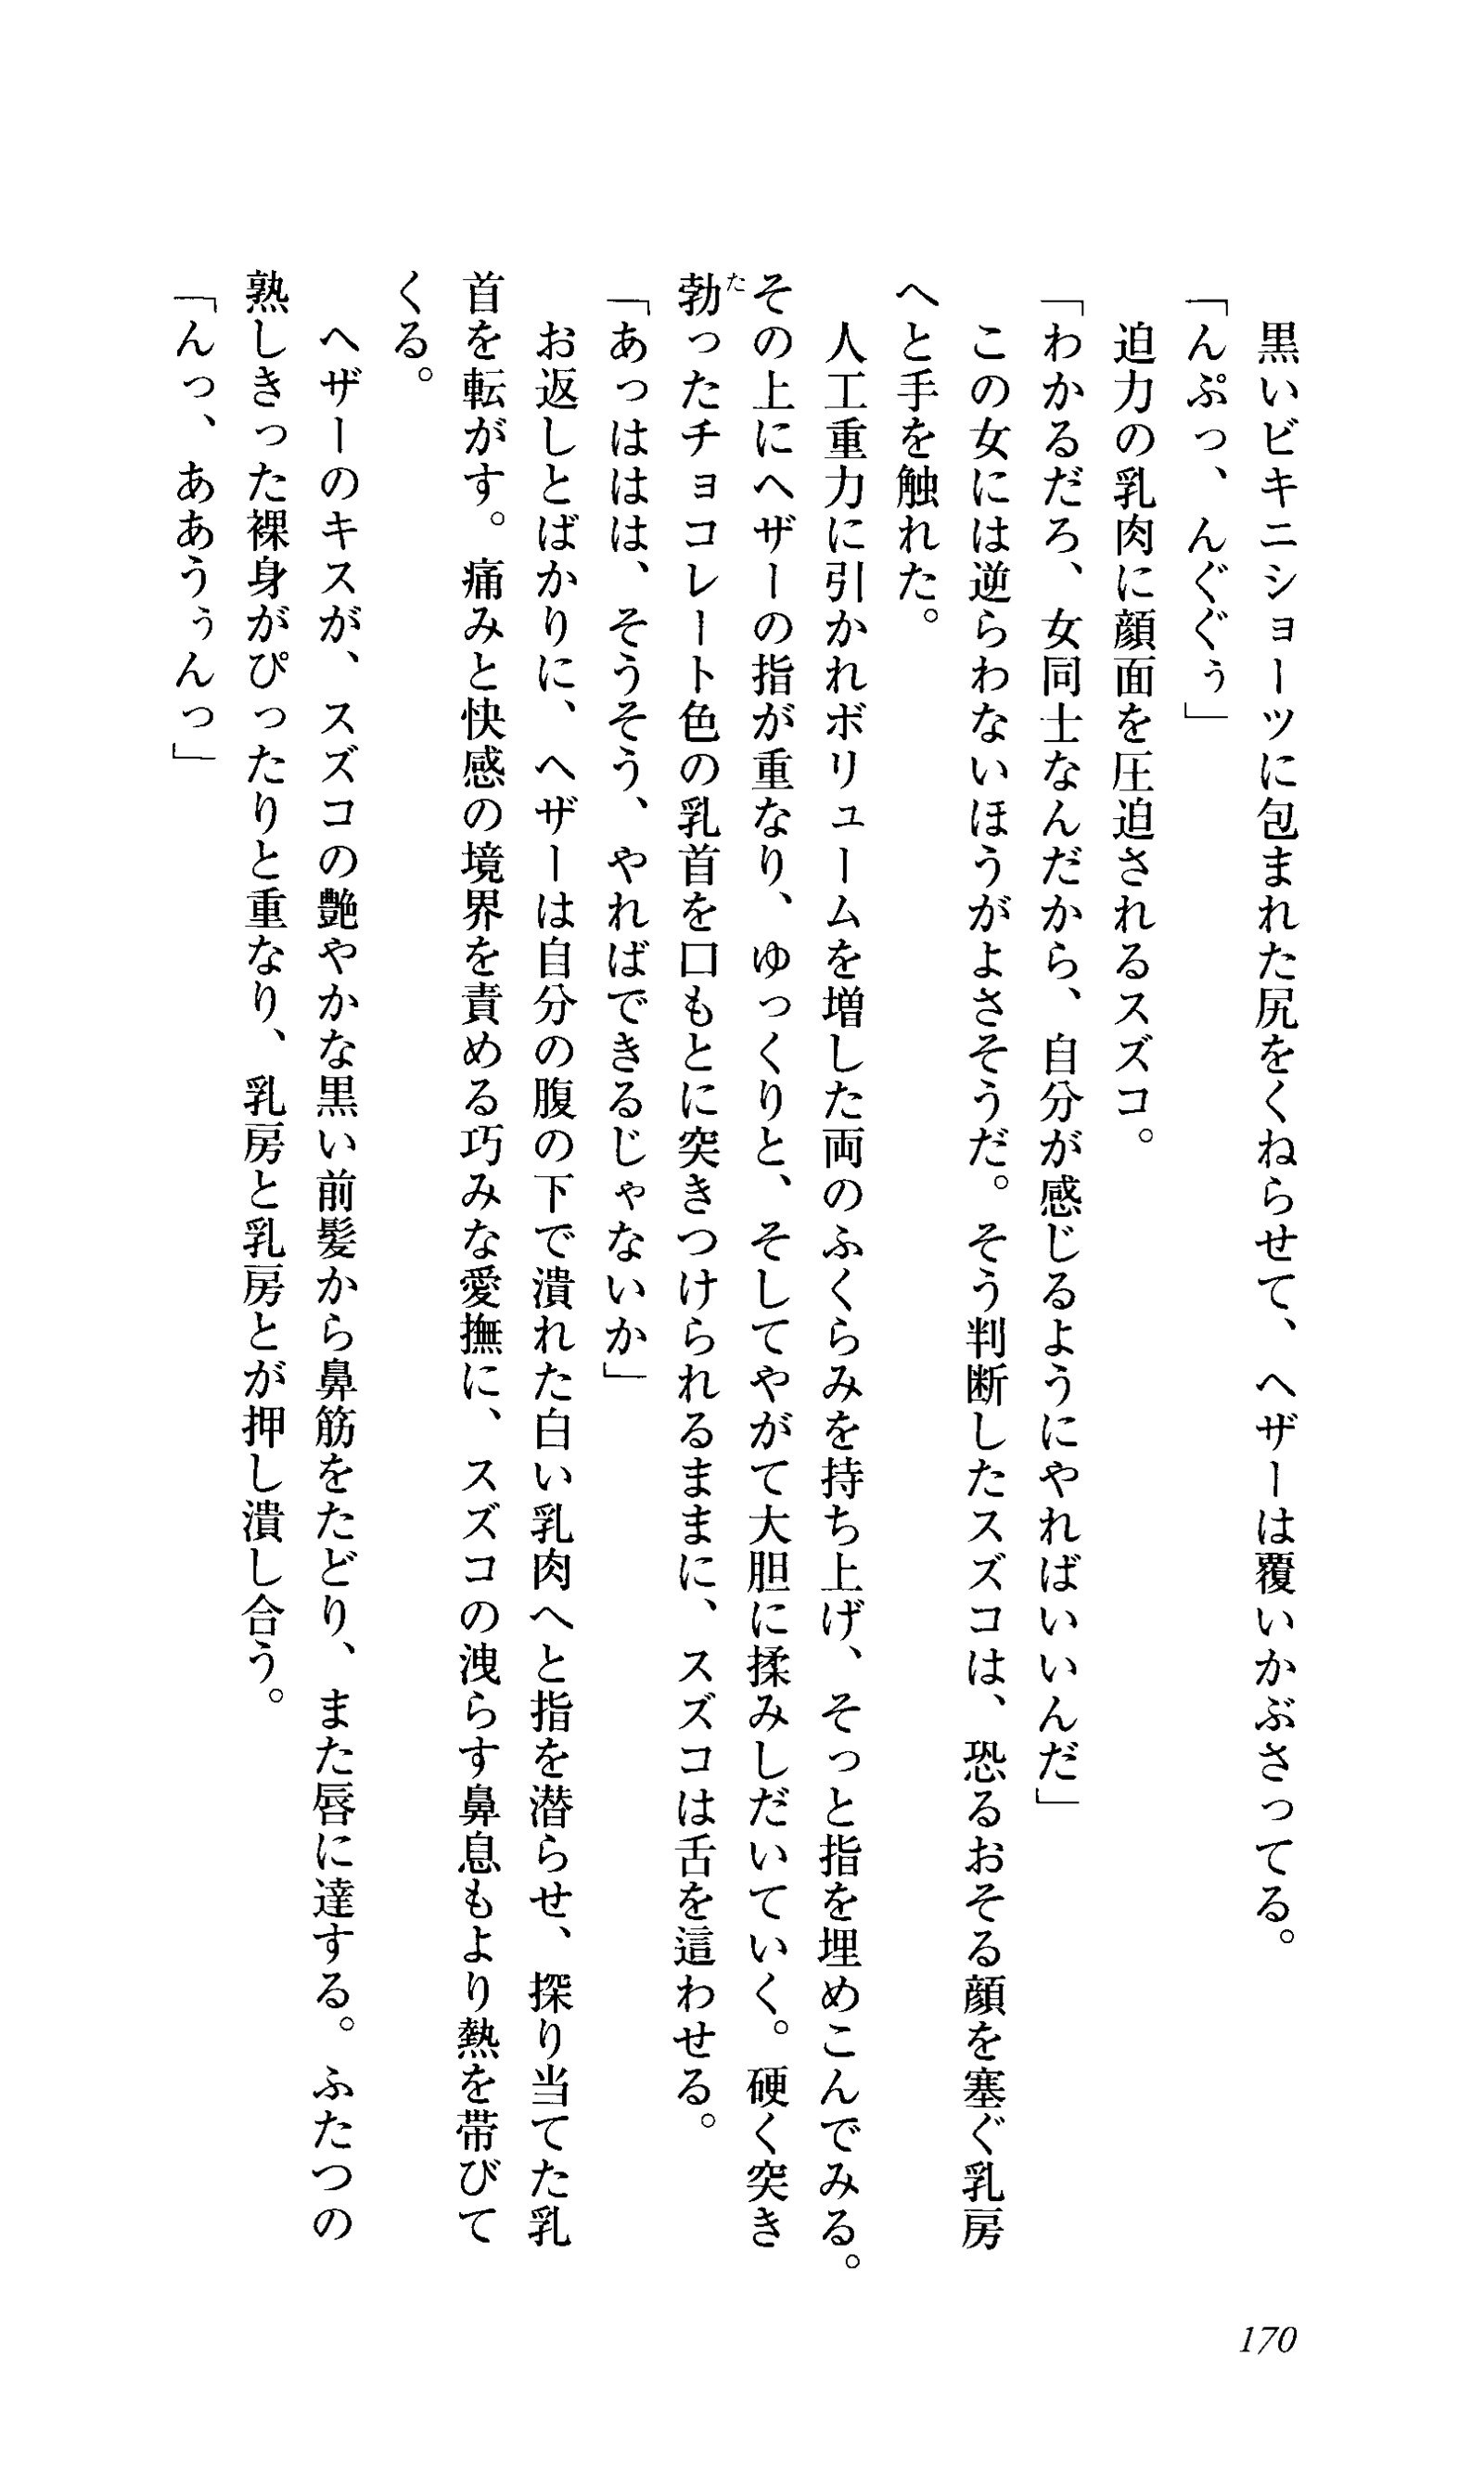 黒いビキニショーツに包まれた尻をくねらせて、ヘザーは覆いかぶさってる。
「んぷっ、んぐぐぅ」
迫力の乳肉に顔面を圧迫されるスズコ。
「わかるだろ、女同士なんだから、自分が感じるようにやればいいんだ」
この女には逆らわないほうがよさそうだ。そう判断したスズコは、恐るおそる顔を塞ぐ乳房
へと手を触れた。
人工重力に引かれボリュームを増した両のふくらみを持ち上げ、そっと指を埋めこんでみる。
その上にヘザーの指が重なり、ゆっくりと、そしてやがて大胆に揉みしだいていく。硬く突き
勃ったチョコレート色の乳首を口もとに突きつけられるままに、スズコは舌を這わせる。
た
「あっははは、そうそう、やればできるじゃないか」
お返しとばかりに、ヘザーは自分の腹の下で潰れた白い乳肉へと指を潜らせ、探り当てた乳
首を転がす。痛みと快感の境界を責める巧みな愛撫に、スズコの洩らす鼻息もより熱を帯びて
くる。
ヘザーのキスが、スズコの艶やかな黒い前髪から鼻筋をたどり、また唇に達する。ふたつの
熟しきった裸身がぴったりと重なり、乳房と乳房とが押し潰し合う。
「んっ、ああうぅんっ」
170